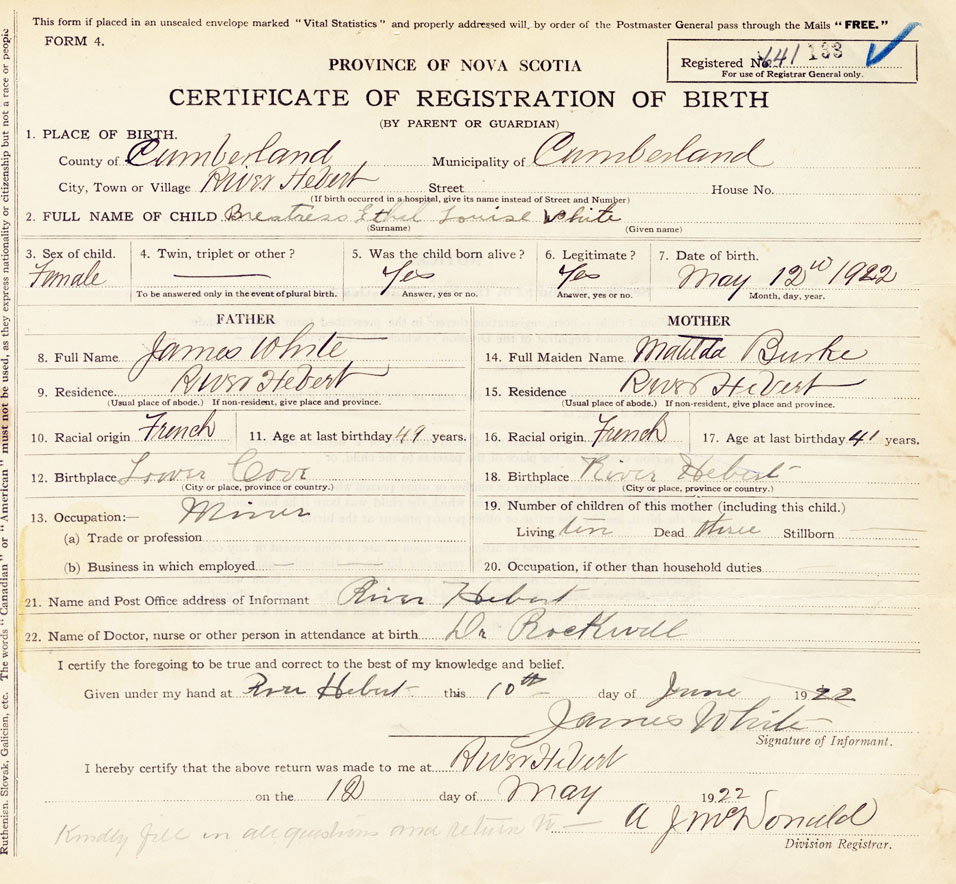 This form if placed in an unsealed envelope marked "Vital Statistics" and properly addressed will, by order of the Postmaster General pass through the Mails "FREE."
FORM 4.
Registered No. 641 133
For use of Registrar General only.
PROVINCE OF NOVA SCOTIA
CERTIFICATE OF REGISTRATION OF BIRTH
(BY PARENT OR GUARDIAN)
1. PLACE OF BIRTH.
County of Cumberland Municipality of Cumberland
City, Town or Village River Hebert Street House No.
(If birth occurred in a hospital, give its name instead of Street and Number)
2. FULL NAME OF CHILD Beatress Ethel Louise White
(Surname) (Given name)
3. Sex of child. 4. Twin, triplet or other? 5. Was the child born alive? 6. Legitimate? 7. Date of birth.
Female Yes Yes May 12 1922
To be answered only in the event of plural birth. Answer, yes or no. Answer, yes or no. Month, day, year.
FATHER MOTHER
8. Full Name James White 14. Full Maiden Name Matilda Burke
9. Residence River Hebert 15. Residence River Hebert
(Usual place of abode.) If non-resident, give place and province. (Usual place of abode.) If non-resident, give place and province.
10. Racial origin French 11. Age at last birthday 49 years. 16. Racial origin French 17. Age at last birthday 41 years.
12. Birthplace Lower Cove 18. Birthplace River Hebert
(City or place, province or country.) (City or place, province or country.)
13. Occupation:— Miner 19. Number of children of this mother (including this child.)
(a) Trade or profession Living ten Dead three Stillborn
(b) Business in which employed 20. Occupation, if other than household duties
21. Name and Post Office address of Informant River Hebert
22. Name of Doctor, nurse or other person in attendance at birth Dr Rockwell
I certify the foregoing to be true and correct to the best of my knowledge and belief.
Given under my hand at River Hebert this 10th day of June 1922
James White
Signature of Informant.
I hereby certify that the above return was made to me at River Hebert
on the 12 day of May 1922
Kindly fill in all questions and return to — A J McDonald
Division Registrar.
Ruthenian, Slovak, Galician, etc. The words "Canadian" or "American" must not be used, as they express nationality or citizenship but not a race or people